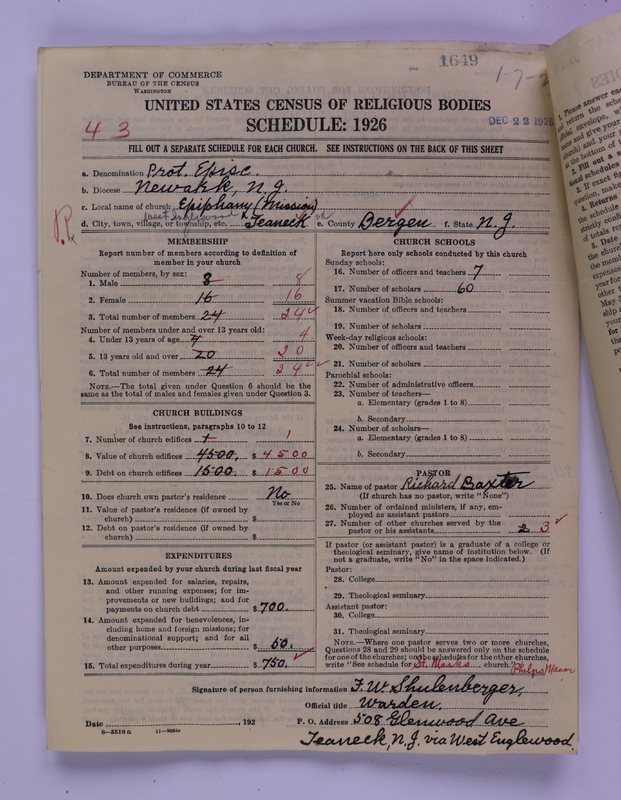 1649
1-7-2
DEPARTMENT OF COMMERCE
BUREAU OF THE CENSUS
WASHINGTON
UNITED STATES CENSUS OF RELIGIOUS BODIES
DEC 22 1926
43
SCHEDULE: 1926
FILL OUT A SEPARATE SCHEDULE FOR EACH CHURCH. SEE INSTRUCTIONS ON THE BACK OF THIS SHEET
a. Denomination Prot. Episc.
b. Diocese Newark, N.J.
c. Local name of church Epiphany (Mission)
West Englewood
d. City, town, village, or township, etc. Teaneck e. County Bergen f. State N.J.
MEMBERSHIP
Report number of members according to definition of
member in your church
Number of members, by sex:
1. Male 8 8
2. Female 16 16
3. Total number of members 24 24
Number of members under and over 13 years old:
4. Under 13 years of age 4 4
5. 13 years old and over 20 20
6. Total number of members 24 24
NOTE.—The total given under Question 6 should be the
same as the total of males and females given under Question 3.
CHURCH BUILDINGS
See instructions, paragraphs 10 to 12
7. Number of church edifices 1 1
8. Value of church edifices 4500. $ 4500
9. Debt on church edifices 1500. $ 1500
10. Does church own pastor's residence No
Yes or No
11. Value of pastor's residence (if owned by
church) $
12. Debt on pastor's residence (if owned by
church) $
EXPENDITURES
Amount expended by your church during last fiscal year
13. Amount expended for salaries, repairs,
and other running expenses; for im-
provements or new buildings; and for
payments on church debt $ 700.
14. Amount expended for benevolences, in-
cluding home and foreign missions; for
denominational support; and for all
other purposes $ 50.
15. Total expenditures during year $ 750.
CHURCH SCHOOLS
Report here only schools conducted by this church
Sunday schools:
16. Number of officers and teachers 7
17. Number of scholars 60
Summer vacation Bible schools:
18. Number of officers and teachers
19. Number of scholars
Week-day religious schools:
20. Number of officers and teachers
21. Number of scholars
Parochial schools:
22. Number of administrative officers
23. Number of teachers—
a. Elementary (grades 1 to 8)
b. Secondary
24. Number of scholars—
a. Elementary (grades 1 to 8)
b. Secondary
PASTOR
25. Name of pastor Richard Baxter
(If church has no pastor, write "None")
26. Number of ordained ministers, if any, em-
ployed as assistant pastors
27. Number of other churches served by the
pastor or his assistants 2 3
If pastor (or assistant pastor) is a graduate of a college or
theological seminary, give name of institution below. (If
not a graduate, write "No" in the space indicated.)
Pastor:
28. College
29. Theological seminary
Assistant pastor:
30. College
31. Theological seminary
NOTE.—Where one pastor serves two or more churches,
Questions 28 and 29 should be answered only on the schedule
for one of the churches; on the schedules for the other churches,
write "See schedule for St. Marks church." Phelps Manor
Signature of person furnishing information F. W. Shulenberger,
Official title Warden,
Date , 192 P. O. Address 508 Glenwood Ave
Teaneck, N.J. via West Englewood.